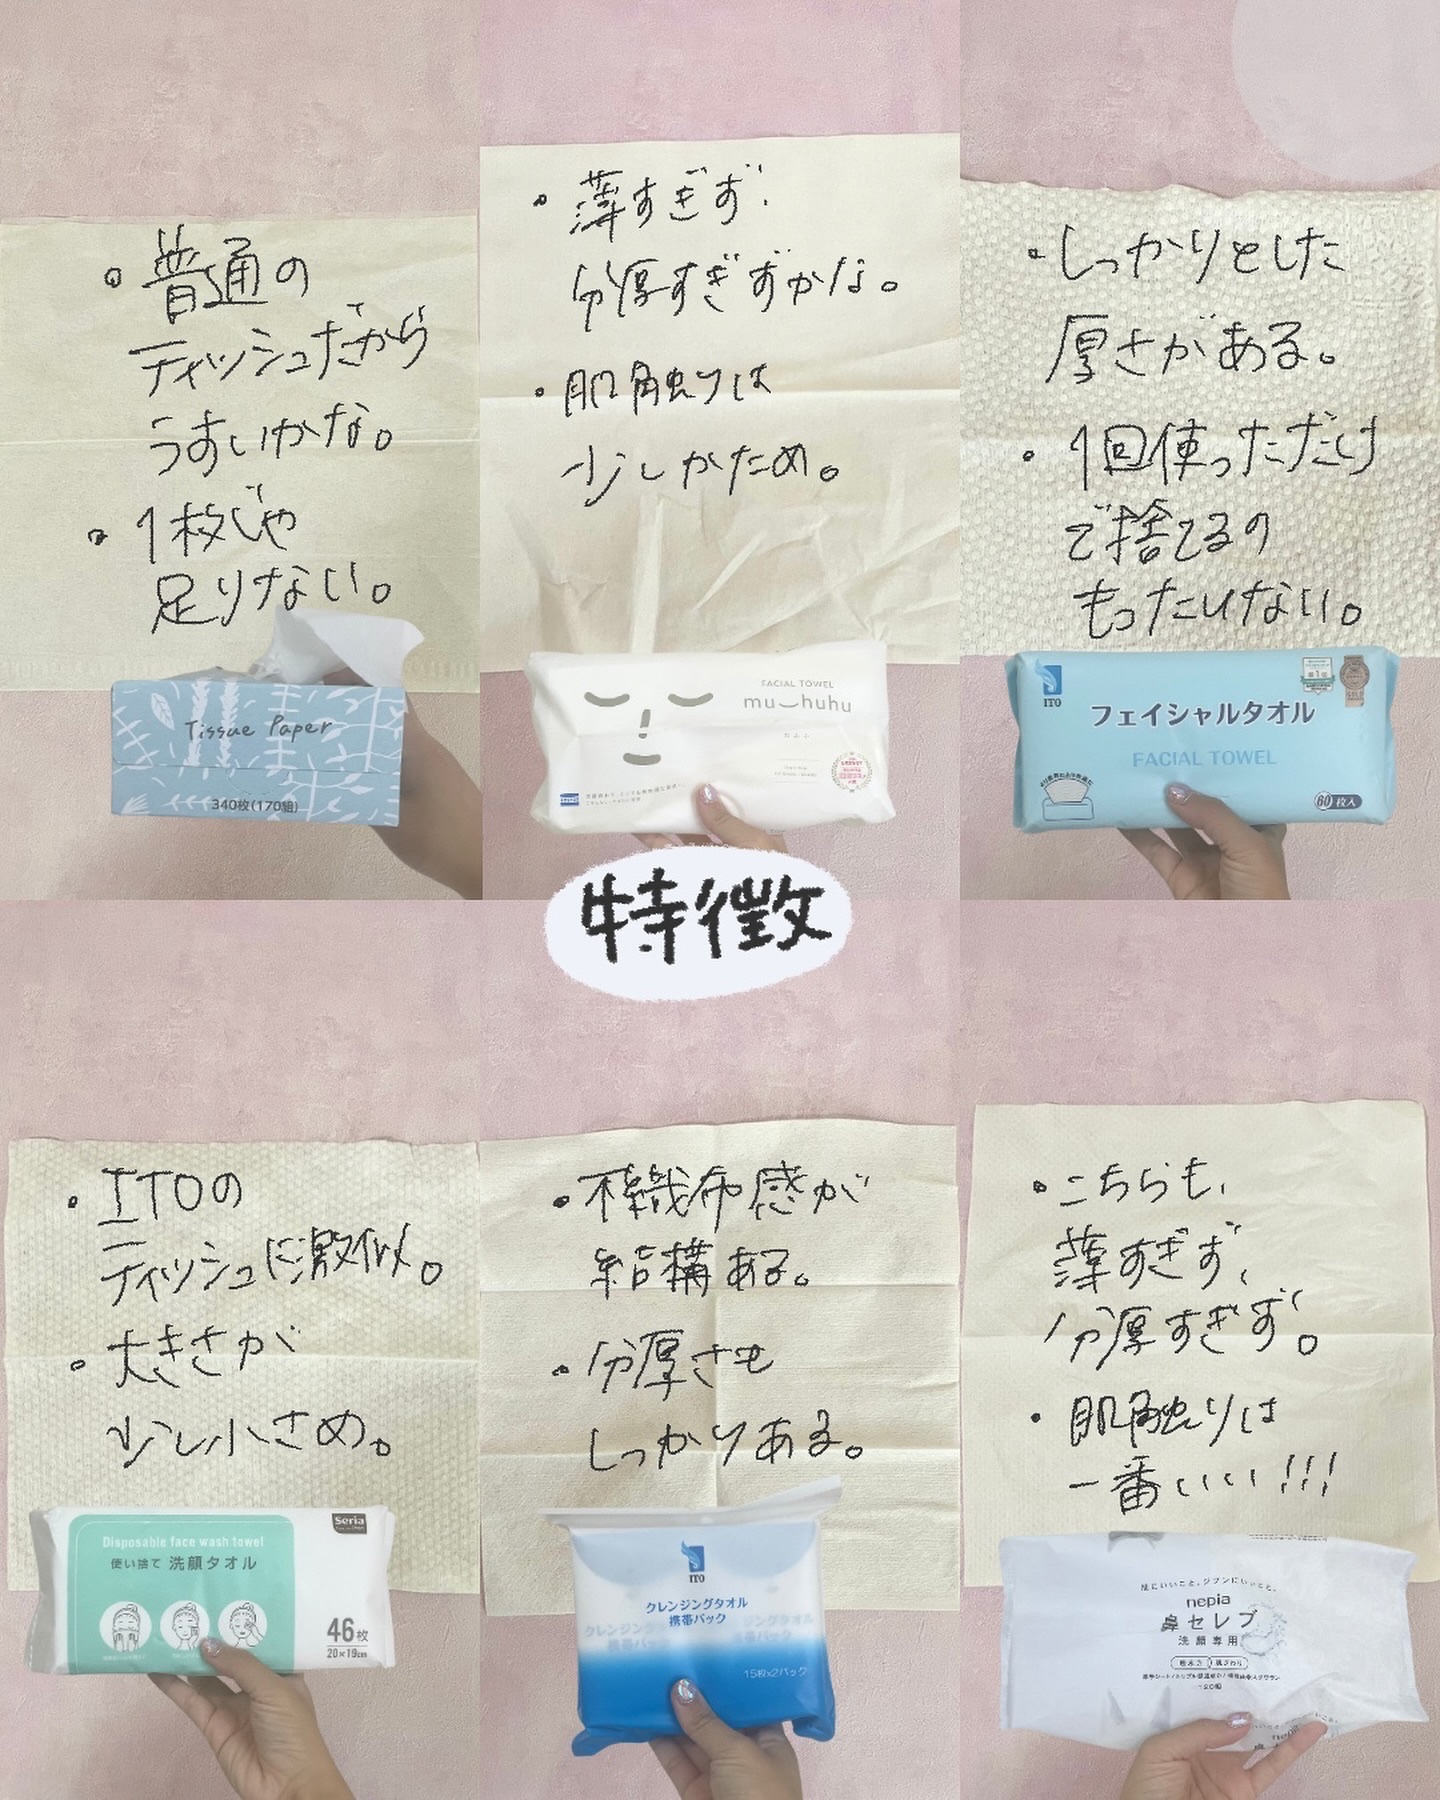 • 普通の
ティッシュだから
うすいかな。
• 1枚じゃ
足りない。
Tissue Paper
340枚(170組)
• 薄すぎず、
分厚すぎずかな。
• 肌触りは
少しかため。
FACIAL TOWEL
mu huhu
• しっかりとした
厚さがある。
• 1回使っただけ
で捨てるの
もったいない。
ITO
フェイシャルタオル
FACIAL TOWEL
60枚入
特徴
• ITOの
ティッシュに激似。
• 大きさが
少し小さめ。
Seria
Disposable face wash towel
使い捨て 洗顔タオル
46枚
20×19cm
• 不織布感が
結構ある。
• 分厚さも
しっかりある。
ITO
クレンジングタオル
携帯パック
15枚×2パック
• こちらも、
薄すぎず、
分厚すぎず。
• 肌触りは
一番いい!!!
肌にいいこと。ジブンにいいこと。
nepia
鼻セレブ
洗顔専用
吸水力 肌ざわり
120組